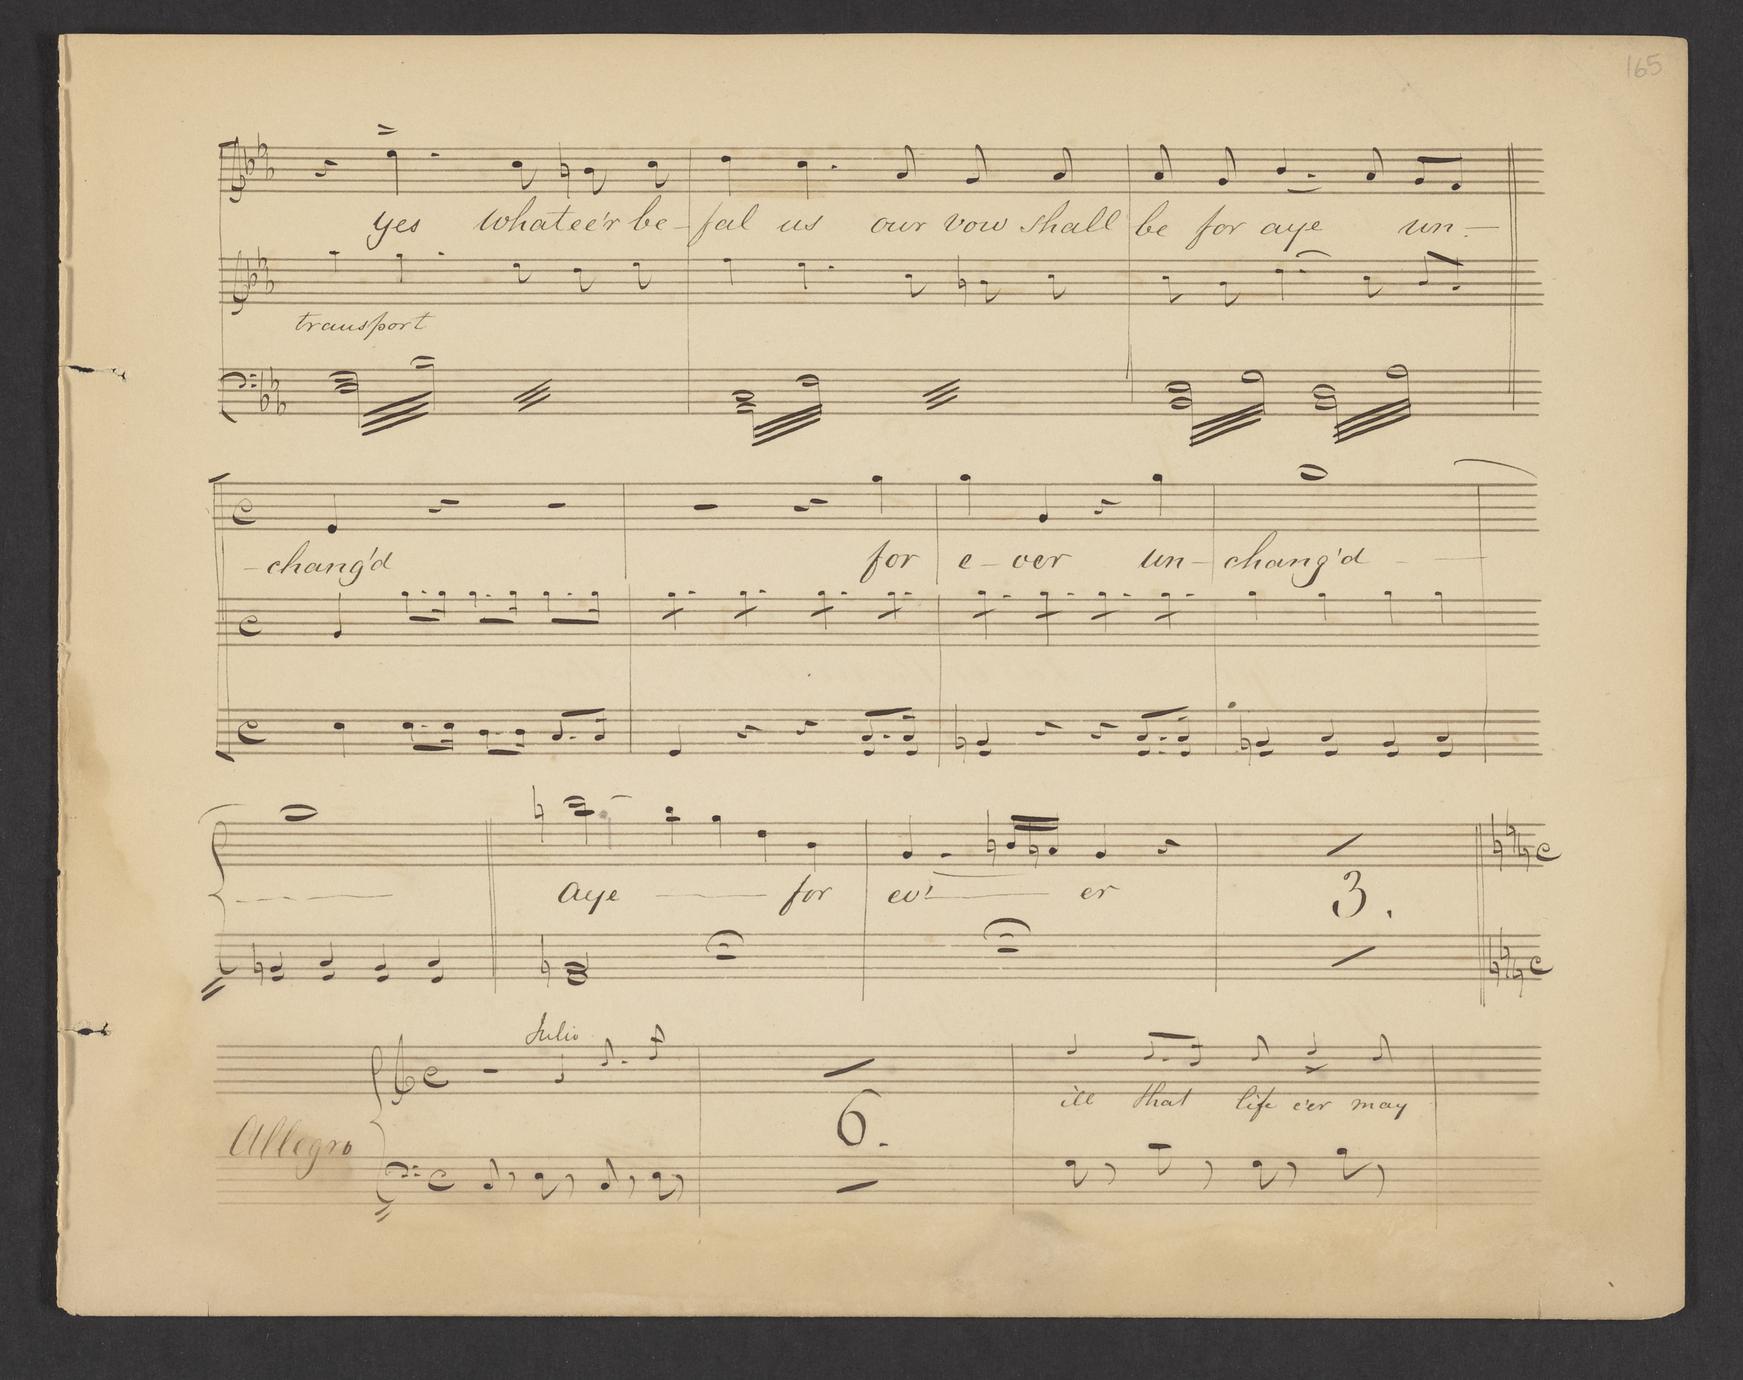 165
yes whatee'r be - fal us our vow shall be for aye un -
transport
- chang'd for e - ver un - chang'd - —
- — — aye — — for ev' — er
3.
Julio
ill that life e'er may
6.
Allegro